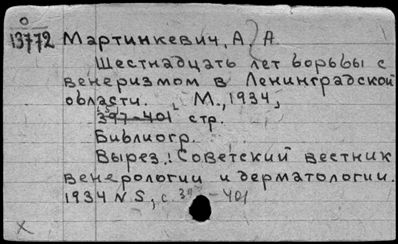 О
13772 Мартинкевич, А. А.
Шестнадцать лет борьбы с
венеризмом в Ленинградской
области. М., 1934,
397-401 стр.
Библиогр.
Вырез.: Советский вестник
венерологии и дерматологии.
1934 N 5, с. 397-401
X